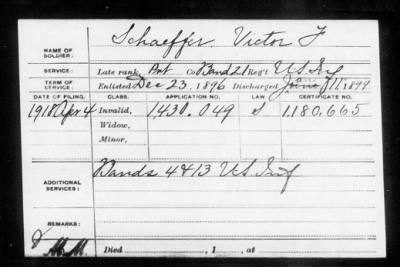 NAME OF SOLDIER: Schaeffer, Victor F
SERVICE: Late rank, Pvt Co. Band 21 Reg't U.S. Inf
TERM OF SERVICE: Enlisted Dec 23, 1896 Discharged 11, 1899
DATE OF FILING. CLASS. APPLICATION NO. LAW. CERTIFICATE NO.
1918 Apr. 4 Invalid, 1430.049 1.180.665
Widow,
Minor,
ADDITIONAL SERVICES: Bands 4 & 13 U.S. Inf
REMARKS:
M.M. Died , 1 , at